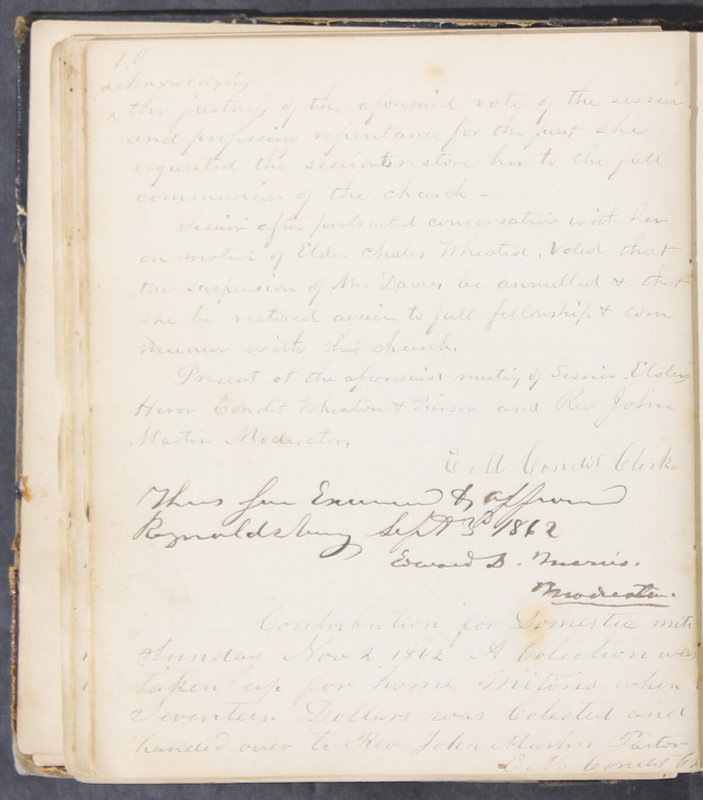 90
acknowledging
the justness of the aforesaid vote of the session
and professing repentance for the past she
requested the session to restore her to the full
communion of the church -
Session after protracted conversation with her
on motion of Elder Chales Wheaton, Voted that
the suspension of Mrs Dawes be annulled & that
she be restored again to full fellowship & com
munion with this church.
Present at the aforesaid meeting of Session Elders
Heron Condit Wheaton & Pierson and Rev John
Martin Moderator.
E M. Condit Clerk
Thus far Examined & approved
Reynoldsburg Sept 3d 1862
Edward D. Morris.
Moderator.
Contribution for Domestic
Sunday Nov 2 1862 A Colection was
taken up for home Mitons when
Seventeen Dollars was Colected and
handed over to Rev John Martin Pastor
E. M. Condit